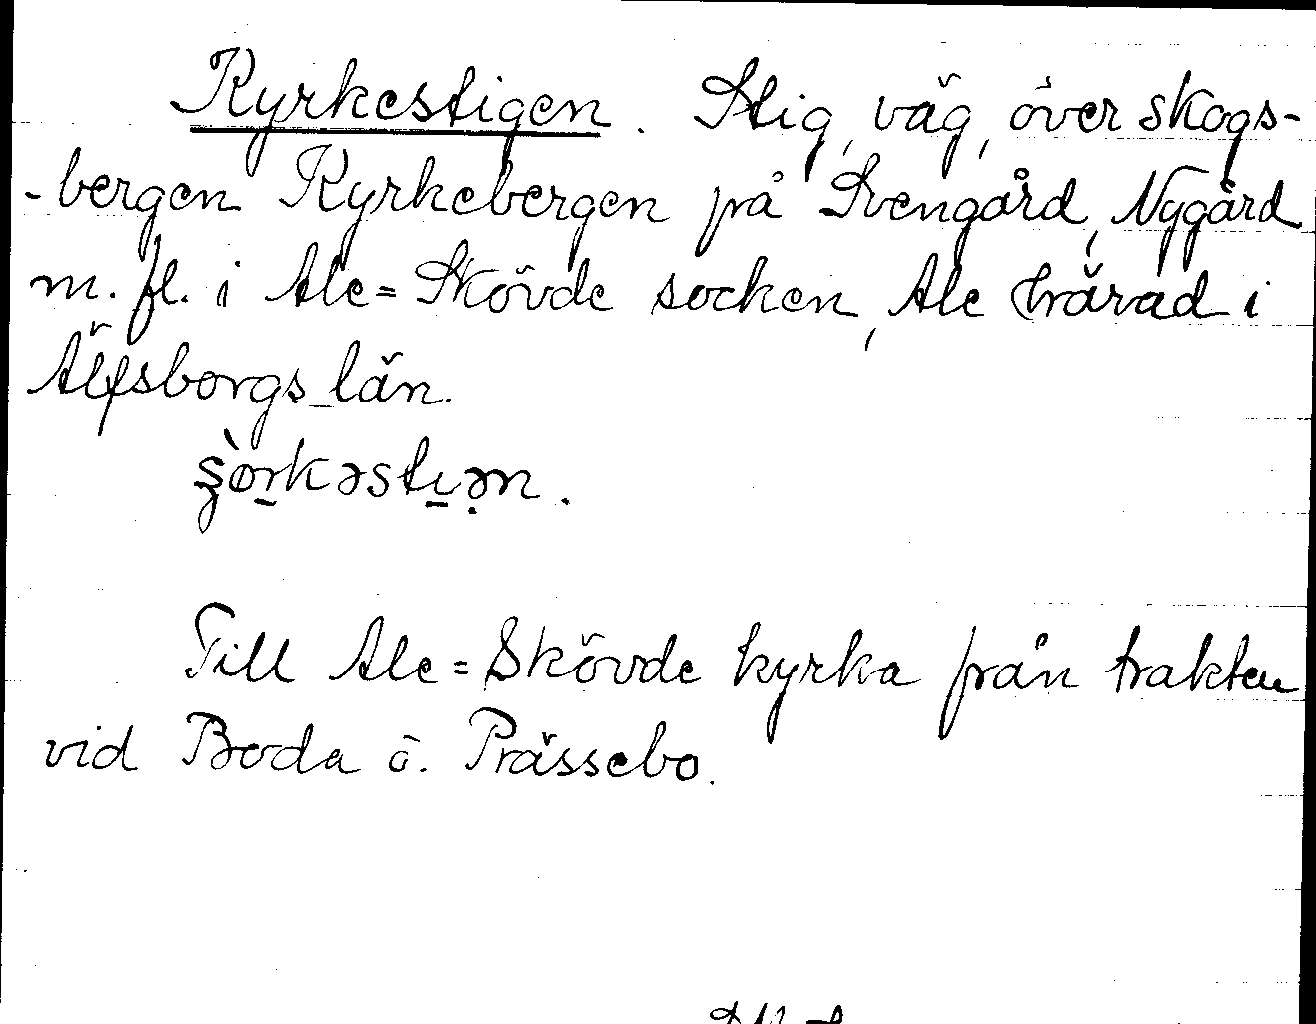 Kyrkestigen. Stig, väg, över skogs-
-bergen Kyrkebergen på Svengård, Nygård
m. fl. i Ale=Skövde socken, Ale härad i
Älfsborgs län.
Till Ale=Skövde kyrka från trakten
vid Boda o. Prässebo.